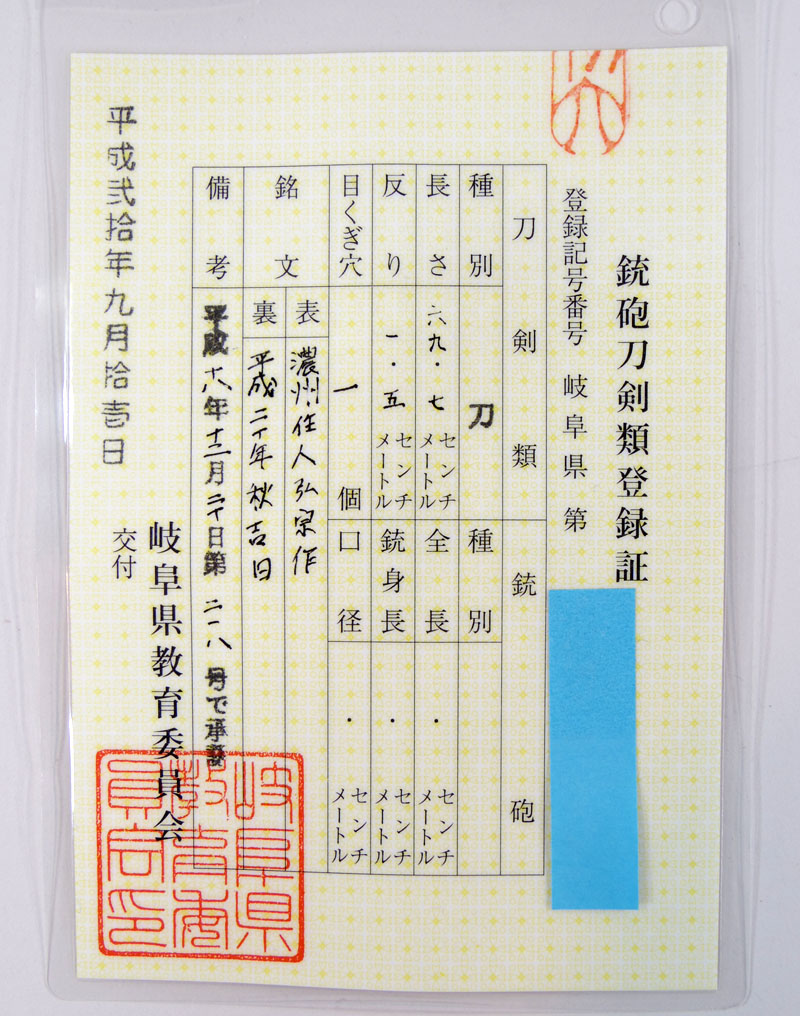 銃砲刀剣類登録証
登録記号番号 岐阜県 第
刀剣類
銃砲
種別 刀
長さ 六九・七 センチメートル
反り 一・五 センチメートル
目くぎ穴 一 個
銘文
表 濃州住人弘宗作
裏 平成二十年秋吉日
備考 平成十八年十二月二十日第二一八号で承認
種別
全長 ・ センチメートル
銃身長 ・ センチメートル
口径 ・ センチメートル
平成弐拾年九月拾壱日
交付
岐阜県教育委員会
岐阜県
教育委
員会印